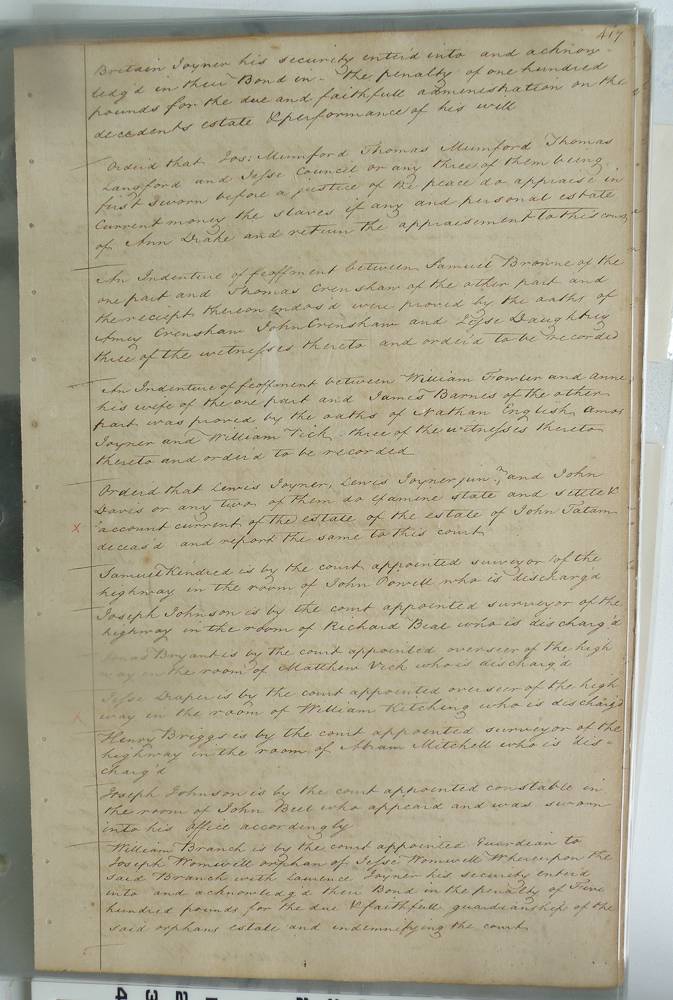 417
Britain Joyner his security enter'd into and acknow-
ledg'd in their Bond in - the penalty of one hundred
pounds for the due and faithfull administration on the
decedents estate & performance of his will
Orderd that Jos: Mumford Thomas Mumford Thomas
Lansford and Jesse Council or any three of them being
first sworn before a justice of the peace do appraise in
Current money the slaves if any and personal estate
of Ann Drake and return the appraisement to this court
An Indenture of feoffment between Samuel Browne of the
one part and Thomas Crenshaw of the other part and
the reciept thereon endos'd were proved by the oaths of
Amey Crenshaw John Crenshaw and Jesse Daughtrey
three of the witnesses thereto and order'd to be recorded
An Indenture of feoffment between William Fowler and Anne
his wife of the one part and James Barnes of the other
part was proved by the oaths of Nathan English Amos
Joyner and William Vick three of the witnesses thereto
thereto and orderd to be recorded
Orderd that Lewis Joyner, Lewis Joyner jun.r and John
Davis or any two of them do Examine state and settle &
X account current of the estate of the estate of John Tatam
deceas'd and report the same to this court
Samuel Kindred is by the court appointed surveyor of the
highway in the room of John Powell who is discharg'd
Joseph Johnson is by the court appointed surveyor of the
highway in the room of Richard Beal who is discharg'd
Bryant is by the court appointed overseer of the high
way in the room of Matthew Vick who is discharg'd
Jesse Draper is by the court appointed overseer of the high
way in the room of William Kitching who is discharg'd
Henry Briggs is by the court appointed surveyor of the
highway in the room of Abram Mitchell who is dis-
charg'd
Joseph Johnson is by the court appointed constable in
the room of John Beel who appeard and was sworn
into his office accordingly
William Branch is by the court appointed Guardian to
Joseph Womwell orphan of Jesse Womwell Whereupon the
said Branch with Laurence Joyner his security enterd
into and acknowledg'd their Bond in the penalty of Five
hundred pounds for the due & faithfull guardianship of the
said orphans estate and indemnifying the court